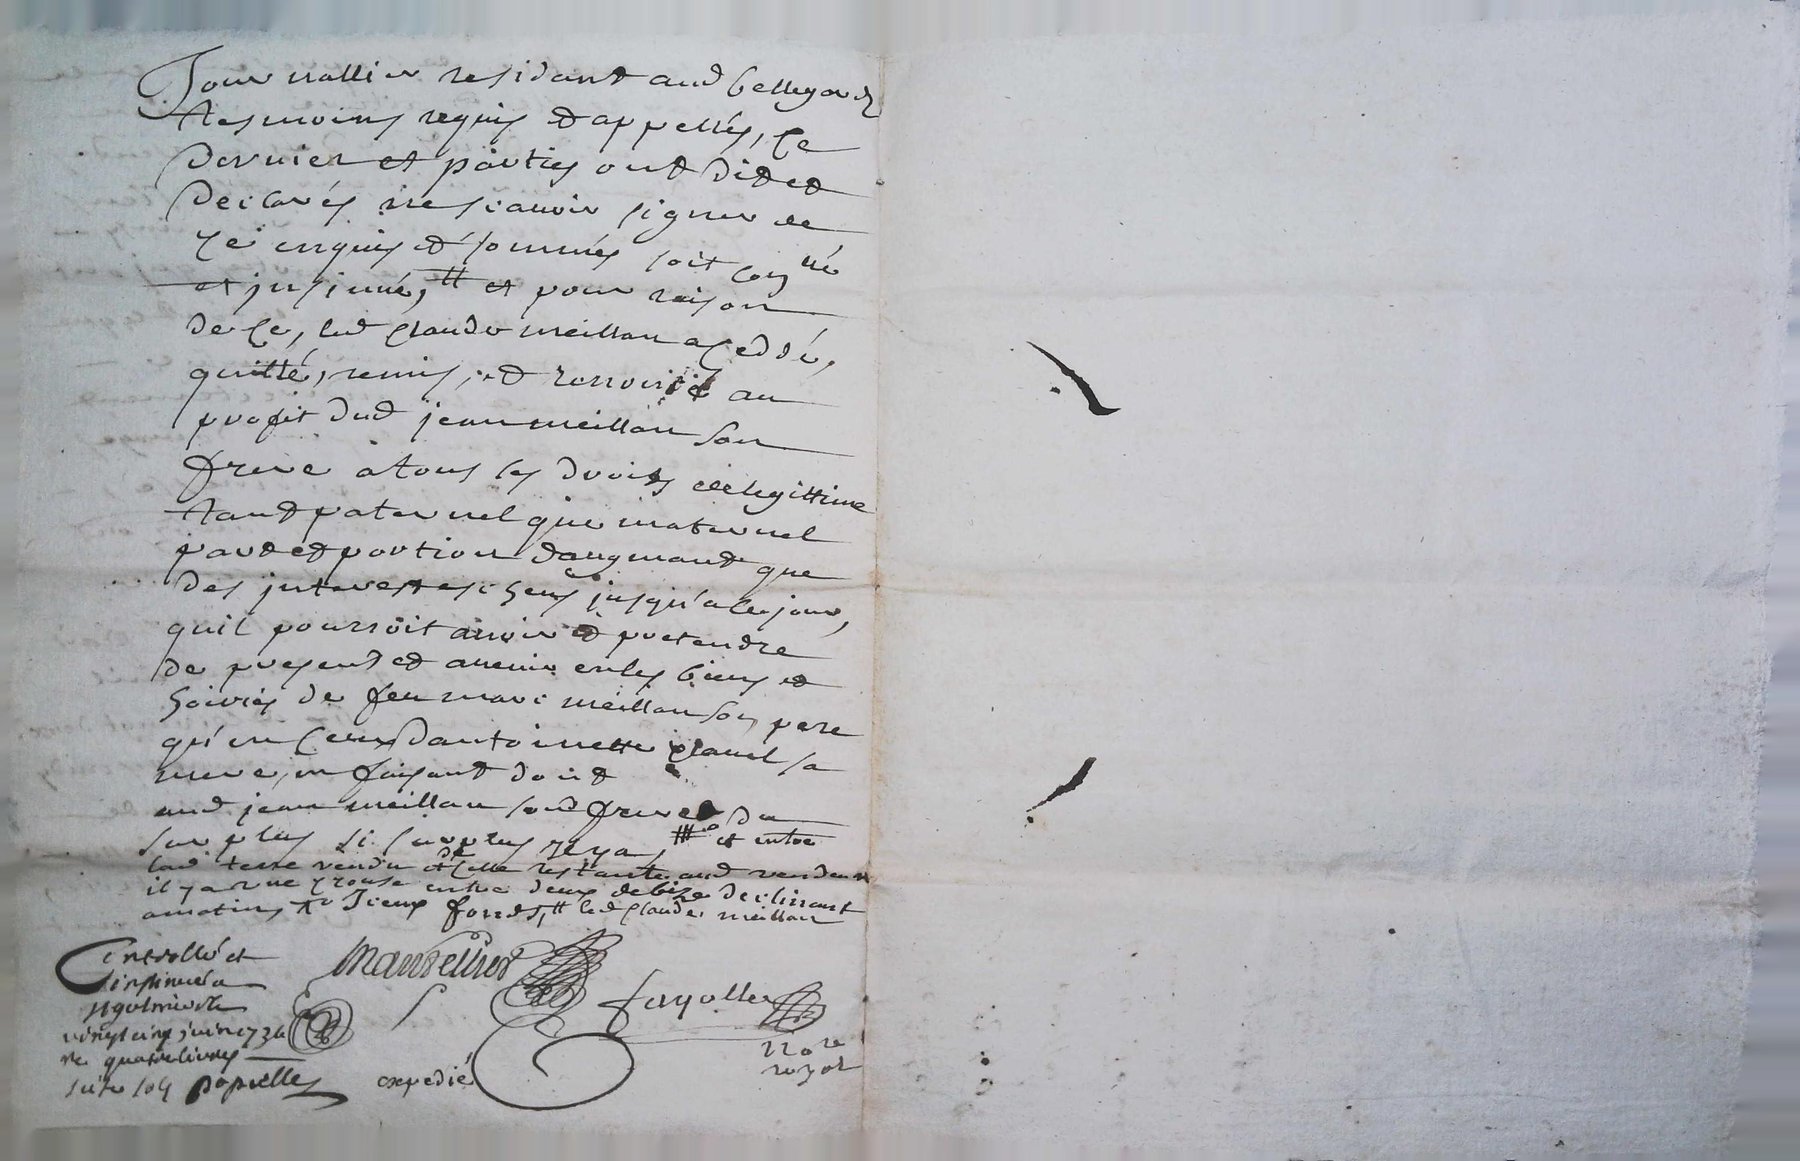 Journallier residant aud bellegarde
tesmoins requis et appellés, ce
dernier et parties ont dit et
declarés ne scavoir signer de
ce enquis et sommés soit con^né
et insinué, # et pour raison
de ce, led claude meillan a ceddé,
quitté, remis, et renvoié au
profit dud jean meillan son
frere a tous les droits de legittime
tant paternel que maternel
part et portion daugmant que
des interest escheus jusqu'a ce jour,
quil pourroit avoir et pretendre
de present et avenir en les biens et
hoiries de feu marc meillan son pere
qu'en ceux dantoinette planel sa
mere, en faisant
aud jean meillan sond frere du
surplus si surplus y a, # et entre
lad terre vendu et celle restante aud vendeur
il y a une entre deux de bize declinant
a matin iceux fonds, # led claude meillan
Controllé et
insinué a
st galmier le
vingt cinq juin 1734
re quatre livres
sols
fayolle
no^re
royal
expedié